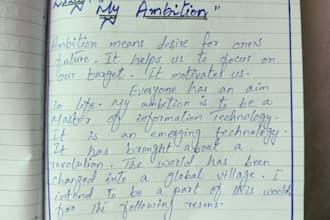 "My Ambition"
Ambition means desire for ones
future. It helps us to focus on
our target. It motivates us.
Everyone has an aim
in life. My ambition is to be a
Master of information Technology.
It is an emerging technology.
It has brought about a
revolution. The world has been
changed into a global village. I
intend to be a part of this world
for the following resons.